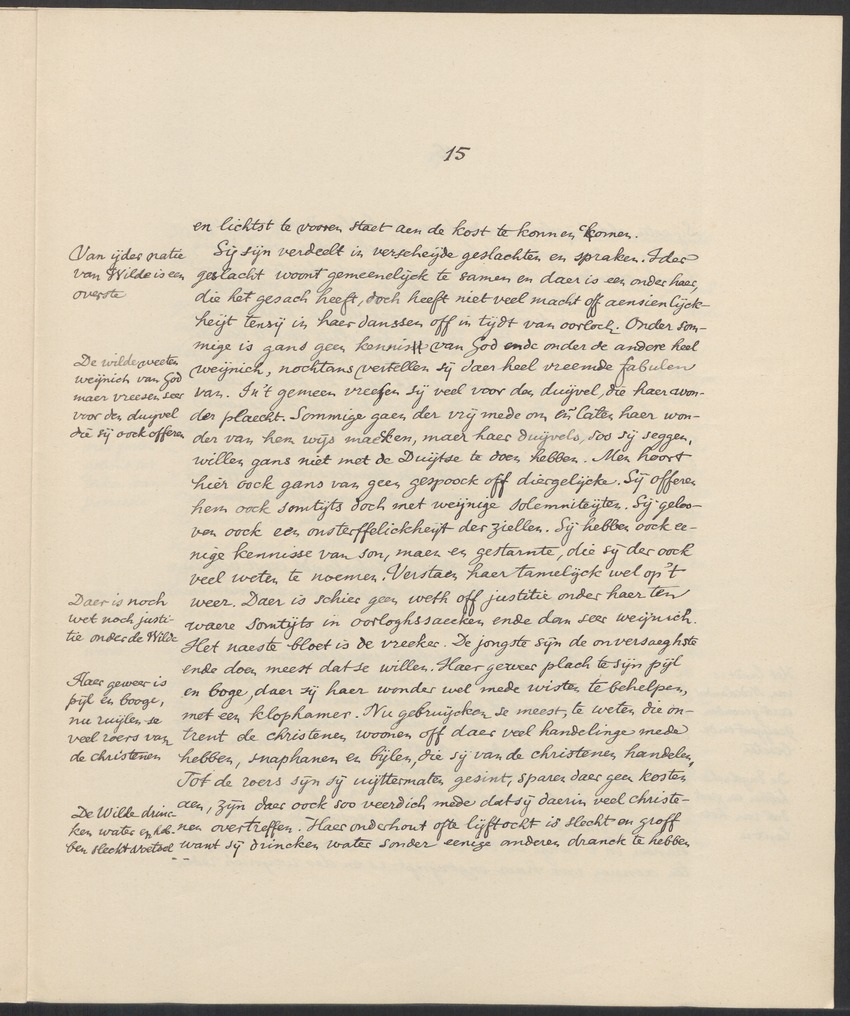 15
en lichtst te vooren staet aen de kost te konnen komen.
Van ijder natie
van Wilde is een
overste
Sij sijn verdeelt in verscheijde geslachten en spraken. Ider
geslacht woont gemeenelijck te samen en daer is een onder haer,
die het gesach heeft, doch heeft niet veel macht off aensienlijck-
heijt tensij in haer danssen off in tijdt van oorloch. Onder som-
mige is gans geen kennis van God ende onder de andere heel
De wilde weeten
weijnich van God
maer vreesen seer
voor den duyvel
die sij oock offeren
weijnich, nochtans vertellen sij daer heel vreemde fabulen
van. In't gemeen vreesen sij veel voor den duijvel, die haer won-
der plaeckt. Sommige gaen der vrij mede om en laten haer won-
der van hem wijs maecken, maer haer duijvels, soo sij seggen,
willen gans niet met de Duijtse te doen hebben. Men hoort
hier oock gans van geen gespoock off diergelijcke. Sij offeren
hem oock somtijts doch met weijnige solemniteijten. Sij geloo-
ven oock een onsterffelickheijt der ziellen. Sij hebben oock ee-
nige kennisse van son, maen en gestarnte, die sij der oock
veel weten te noemen. Verstaen haer tamelijck wel op't
Daer is noch
wet noch justi-
tie onder de Wilde
weer. Daer is schier geen weth off justitie onder haer ten
waere somtijts in oorloghssaecken ende dan seer weijnich.
Het naeste bloet is de vreeker. De jongste sijn de onversaeghste
ende doen meest dat se willen. Haer geweer plach te sijn pijl
Haer geweer is
pijl en booge,
nu ruijlen se
veel roers van
de christenen
en boge, daer sij haer wonder wel mede wisten te behelpen,
met een klophamer. Nu gebruijcken se meest, te weten die on-
trent de christenen woonen off daer veel handelinge mede
hebben, snaphanen en bijlen, die sij van de christenen handelen.
Tot de roers sijn sij uijttermaten gesint, sparen daer geen kosten
aen, zijn daer oock soo veerdich mede dat sij daerin veel christe-
De Wilde drinc-
ken water en heb-
ben slecht voetsel
nen overtreffen. Haer onderhout ofte lijftocht is slecht en groff
want sij drincken water sonder eenige anderen dranck te hebben